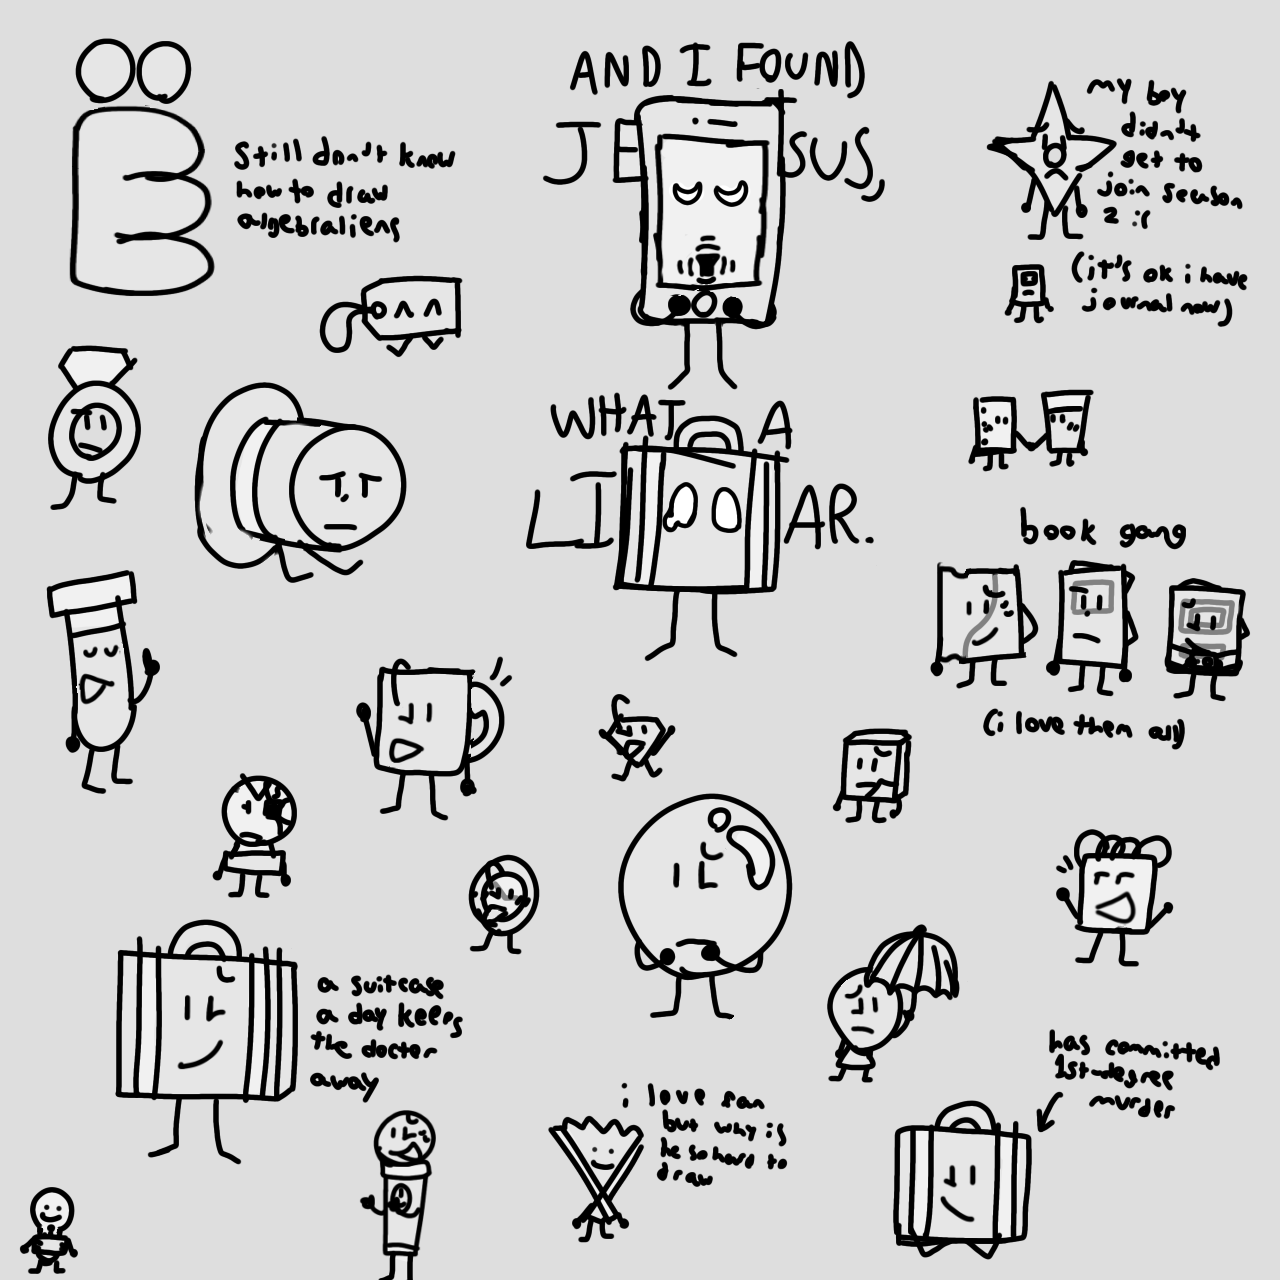 AND I FOUND
JESUS,
my boy
didn't
get to
join season
2 :(
Still don't know
how to draw
algebraliens
(it's ok i have
journal now)
WHAT A
LIAR.
book gang
(i love them all)
a suitcase
a day keeps
the doctor
away
has committed
1st-degree
murder
i love fan
but why is
he so hard to
draw